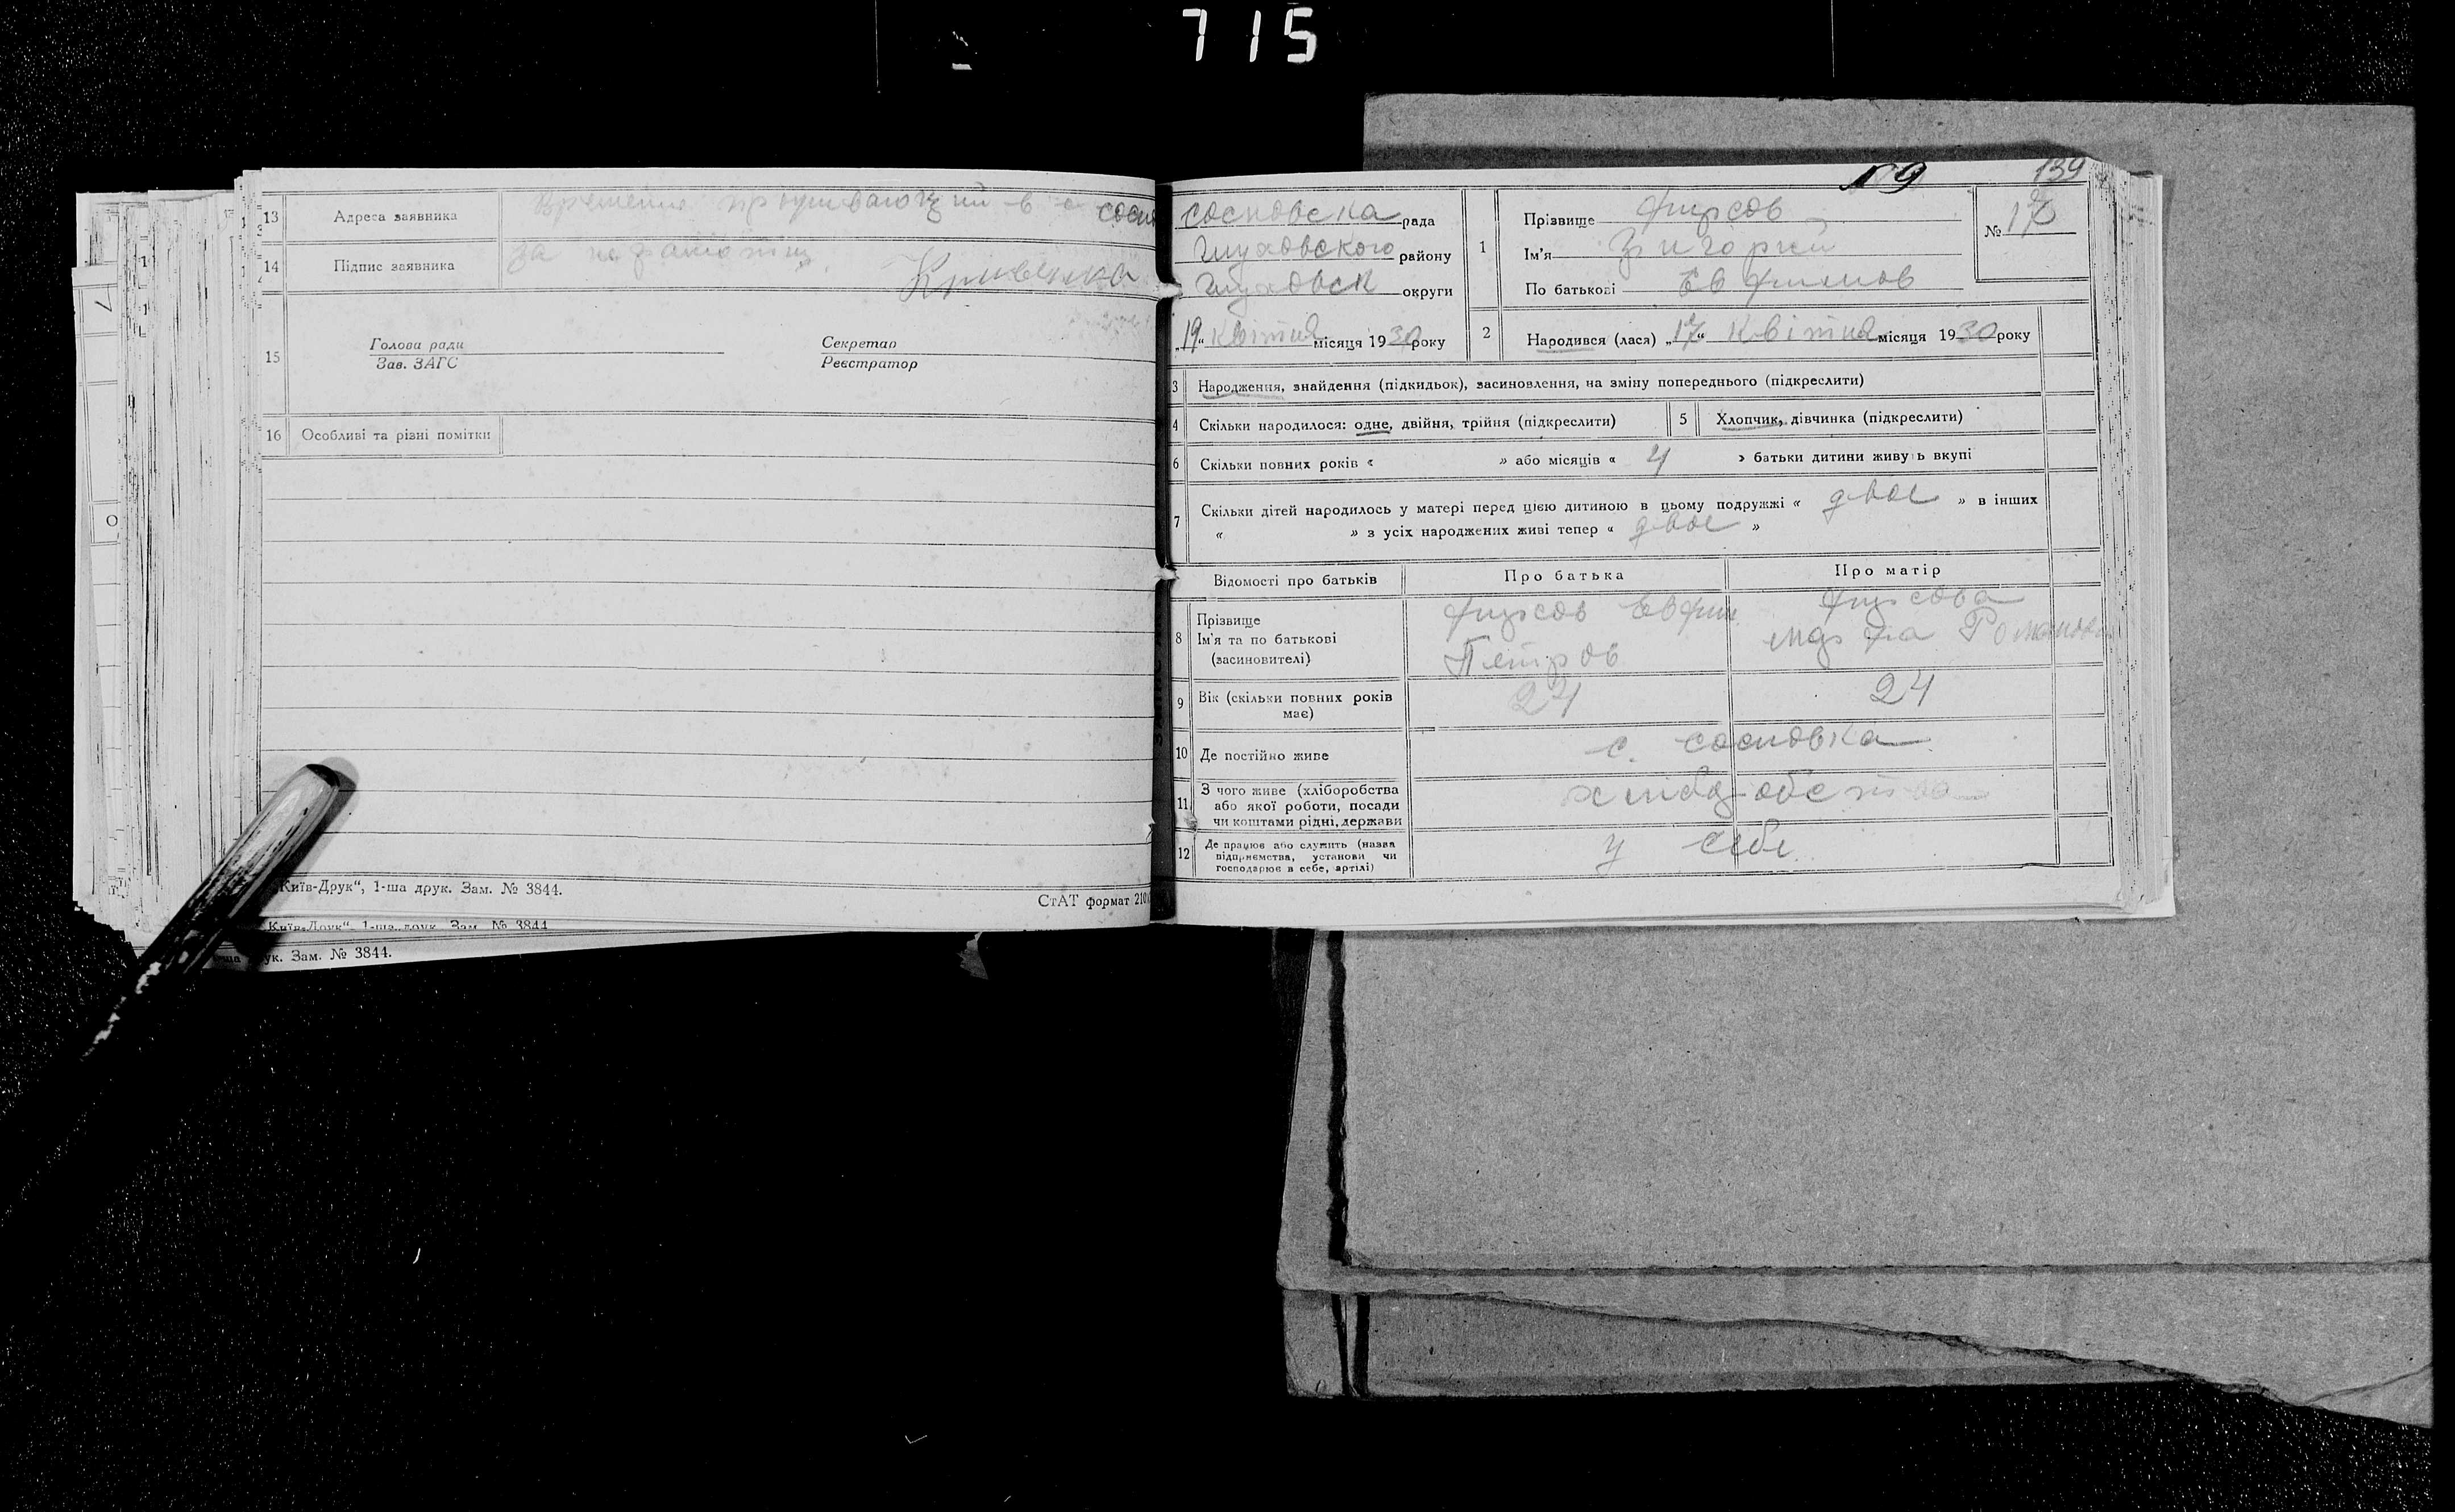 715
13 Адреса заявника проживающий в с сосн
14 Підпис заявника за Кривенко
15 Голова ради Зав. ЗАГС Секретар Реєстратор
16 Особливі та різні помітки
Київ-Друк“, 1-ша друк. Зам. № 3844.
СтАТ формат 210
Київ-Друк“, 1-ша друк. Зам. № 3844
Зам. № 3844.
139
сосновска рада
Глуховского району
Глуховск округи
„19“ Квітня місяця 1930 року
1 Прізвище Фирсов
Ім’я Григорий
По батькові Евфимов
№ 17
2 Народився (лася) „17“ Квітня місяця 1930 року
3 Народження, знайдення (підкидьок), засиновлення, на зміну попереднього (підкреслити)
4 Скільки народилося: одне, двійня, трійня (підкреслити) 5 Хлопчик, дівчинка (підкреслити)
6 Скільки повних років « » або місяців « 4 » батьки дитини живуь вкупі
7 Скільки дітей народилось у матері перед цією дитиною в цьому подружжі « двое » в інших
« » з усіх народжених живі тепер « двое »
Відомості про батьків Про батька Про матір
8 Прізвище Ім’я та по батькові (засновителі) Фирсов Евфим Петров Фирсова Марфа Романова
9 Вік (скільки повних років має) 24 24
10 Де постійно живе с. сосновка
11 З чого живе (хліборобства або якої роботи, посади чи коштами рідні, держави
12 Де працює або служить (назва підприємства, установи чи господарює в себе, артілі) у себе